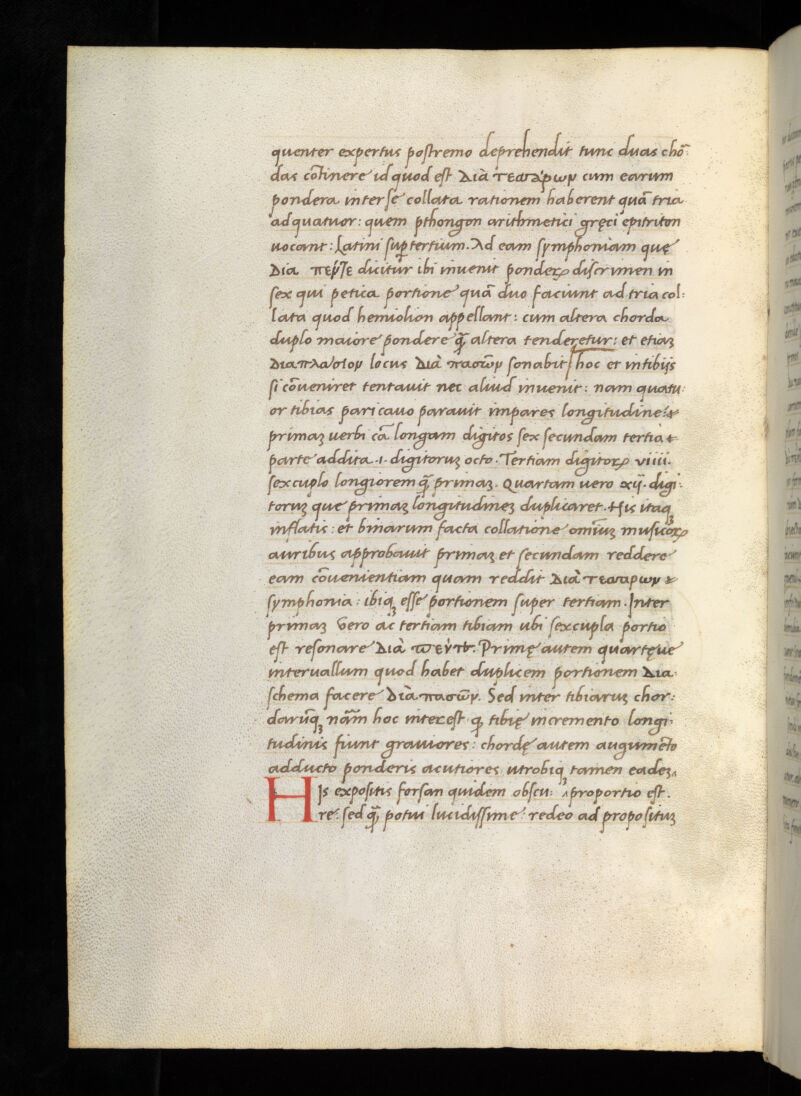 quenter expertus postremo deprehendit tunc duas chō:
das cōtinere id quod est Διὰ τεσσάρων cum earum
pondera inter se collata rationem haberent quā tria
ad quatuor: quem pthongon arithmetici gręci epitriton
uocant: Latini suptertium. Ad eam symphoniam quę
Δια πεντε dicitur ibi inuenit ponderꝝ discrimen in
sex qui petica portione quā duo faciunt ad tria col:
lata quod hemiolion appellant: cum altera chorda
duplo maiore pondere q̄ꝫ altera tenderetur: et etiaꝫ
Διαπλασιον locus Διὰ πασῶν sonabit hoc et in tibijs
si cōueniret tentauit nec aliud inuenit: nam quatu:
or tibias pari cauo parauit impares longitudine: &
primaꝫ uerbi cā longam digitos sex secundam tertia &
parte addita .i. digitoruꝫ octo. Tertiam digitoꝝ viiii.
sexcuplo longiorem q̄ꝫ primaꝫ. Quartam uero xij. digi:
toruꝫ que primaꝫ longitudineꝫ duplicaret. His itaqꝫ
inflatis: et binarum facta collatione omiuꝫ musicoꝝ
auribus approbauit primaꝫ et secundam reddere
eam cōuenientiam quam reddit Διὰ τεσσαρων &
symphonia: ibiqꝫ esse portionem super tertiam. Inter
primaꝫ Vero ac tertiam tibiam ubi sexcupla portio
est resonare Διὰ πεντε. Primę autem quartęue
interuallum quod habet duplicem portionem Δια
schema facere Διὰ πασῶν. Sed inter tibiaruꝫ chor:
darūqꝫ nām hoc interest qꝫ tibię incremento longi:
tudinis fiunt grauiores: chordę autem augumēto
adducto ponderis acutiores utrobiqꝫ tamen eadeꝫ
HIs expositis forsan quidem obscu: proportio est.
re: sed q̄ꝫ potui lucidissime: redeo ad propositūꝫ